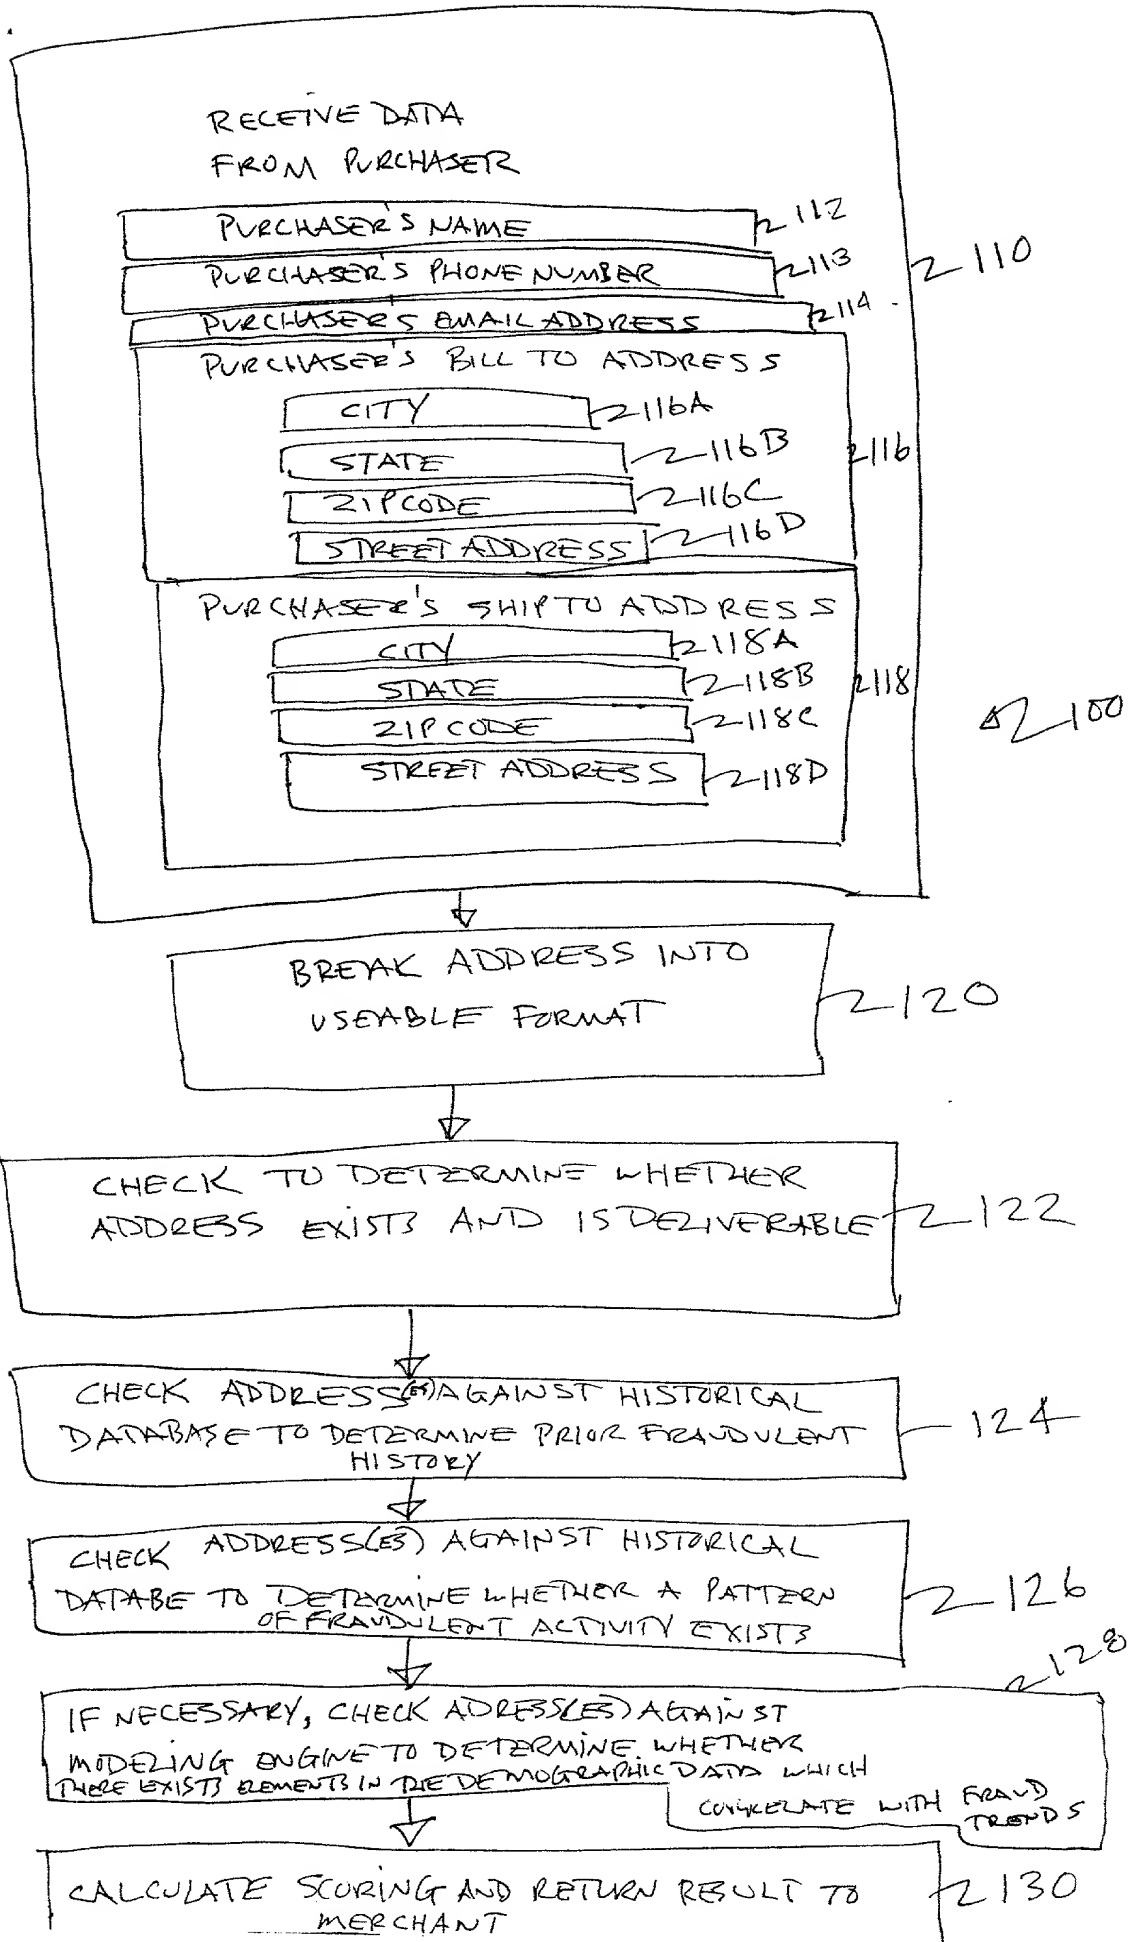 RECEIVE DATA
FROM PURCHASER
PURCHASER'S NAME 112
PURCHASER'S PHONE NUMBER 113
110
PURCHASER'S EMAIL ADDRESS 114
PURCHASER'S BILL TO ADDRESS
CITY 116A
STATE 116B
116
ZIPCODE 116C
STREET ADDRESS 116D
PURCHASER'S SHIP TO ADDRESS
CITY 118A
STATE 118B
118
ZIP CODE 118C
100
STREET ADDRESS 118D
BREAK ADDRESS INTO
USEABLE FORMAT
120
CHECK TO DETERMINE WHETHER
ADDRESS EXISTS AND IS DELIVERABLE 122
CHECK ADDRESS(ES) AGAINST HISTORICAL
DATABASE TO DETERMINE PRIOR FRAUDULENT
HISTORY
124
CHECK ADDRESS(ES) AGAINST HISTORICAL
DATABE TO DETERMINE WHETHER A PATTERN
OF FRAUDULENT ACTIVITY EXISTS
126
128
IF NECESSARY, CHECK ADRESS(ES) AGAINST
MODELING ENGINE TO DETERMINE WHETHER
THERE EXISTS ELEMENTS IN THE DEMOGRAPHIC DATA WHICH
CORRELATE WITH FRAUD
TRENDS
CALCULATE SCORING AND RETURN RESULT TO
MERCHANT
130